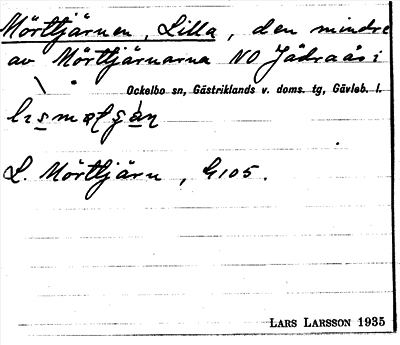 Mörttjärnen, Lilla, den mindre
av Mörttjärnarna NO Jädraås i
Ockelbo sn, Gästriklands v. doms. tg, Gävleb. l.
L. Mörttjärn, G105.
LARS LARSSON 1935